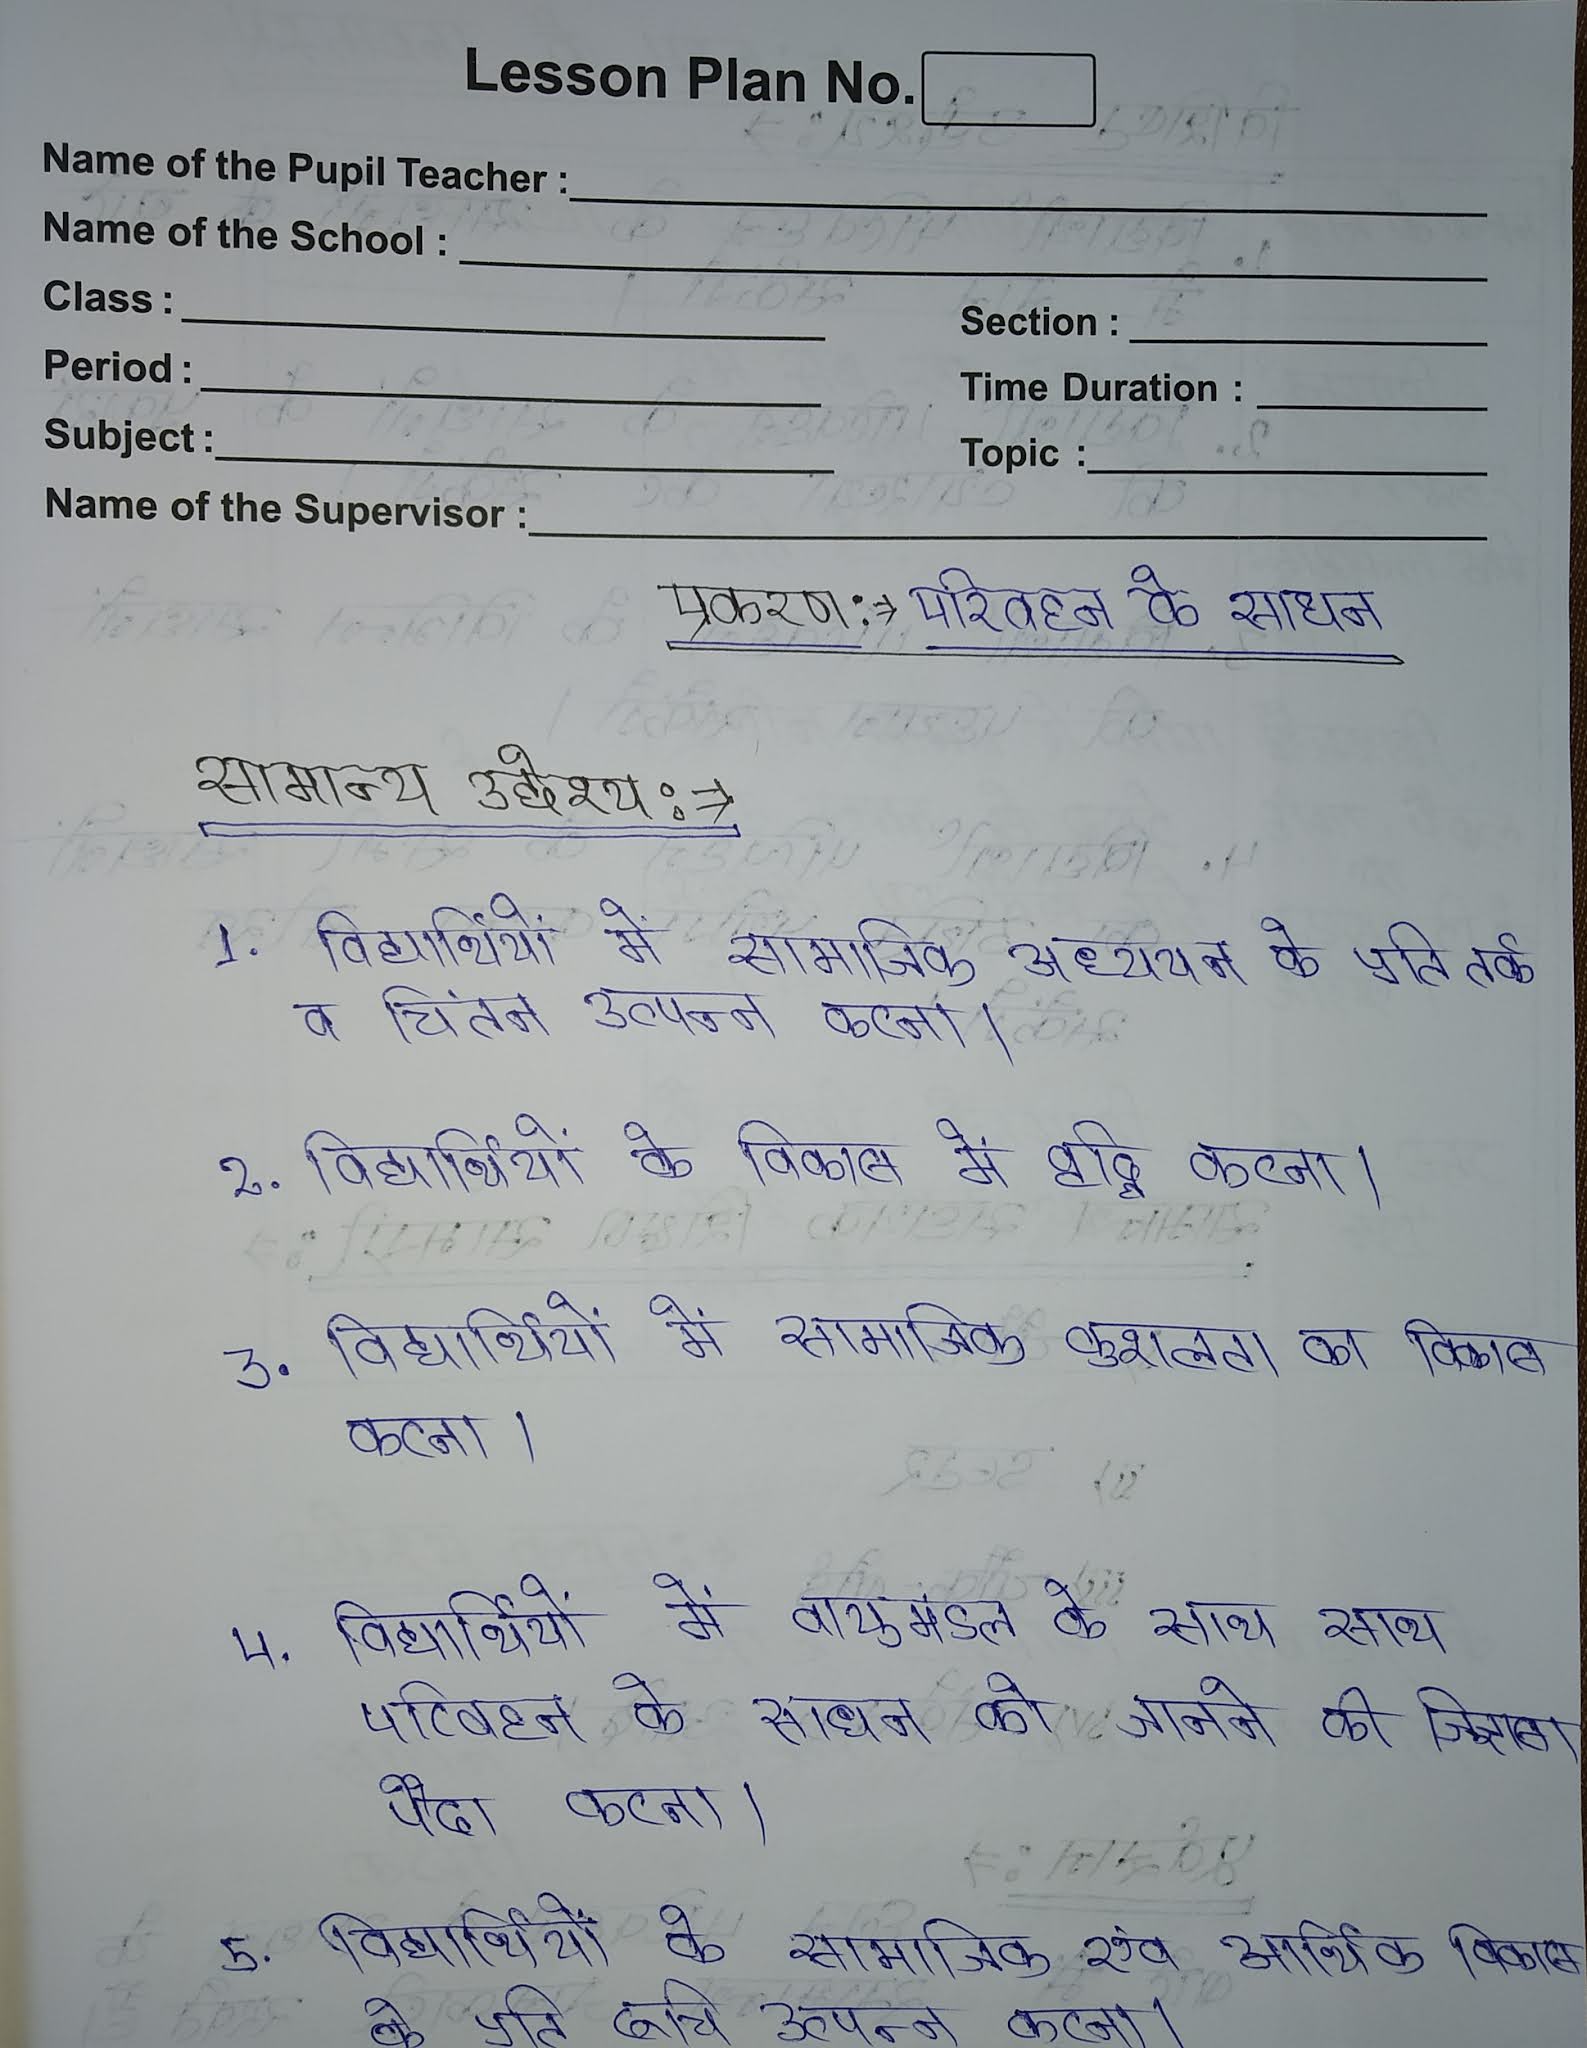 Lesson Plan No.
Name of the Pupil Teacher :
Name of the School :
Class :
Section :
Period :
Time Duration :
Subject :
Topic :
Name of the Supervisor :
प्रकरण:→ परिवहन के साधन
सामान्य उद्देश्य:→
1. विद्यार्थियों में सामाजिक अध्ययन के प्रति तर्क
व चिंतन उत्पन्न करना।
2. विद्यार्थियों के विकास में वृद्धि करना।
3. विद्यार्थियों में सामाजिक कुशलता का विकास
करना।
4. विद्यार्थियों में वायुमंडल के साथ साथ
परिवहन के साधन को जानने की जिज्ञासा
पैदा करना।
5. विद्यार्थियों के सामाजिक एंव आर्थिक विकास
के प्रति रूचि उत्पन्न करना।